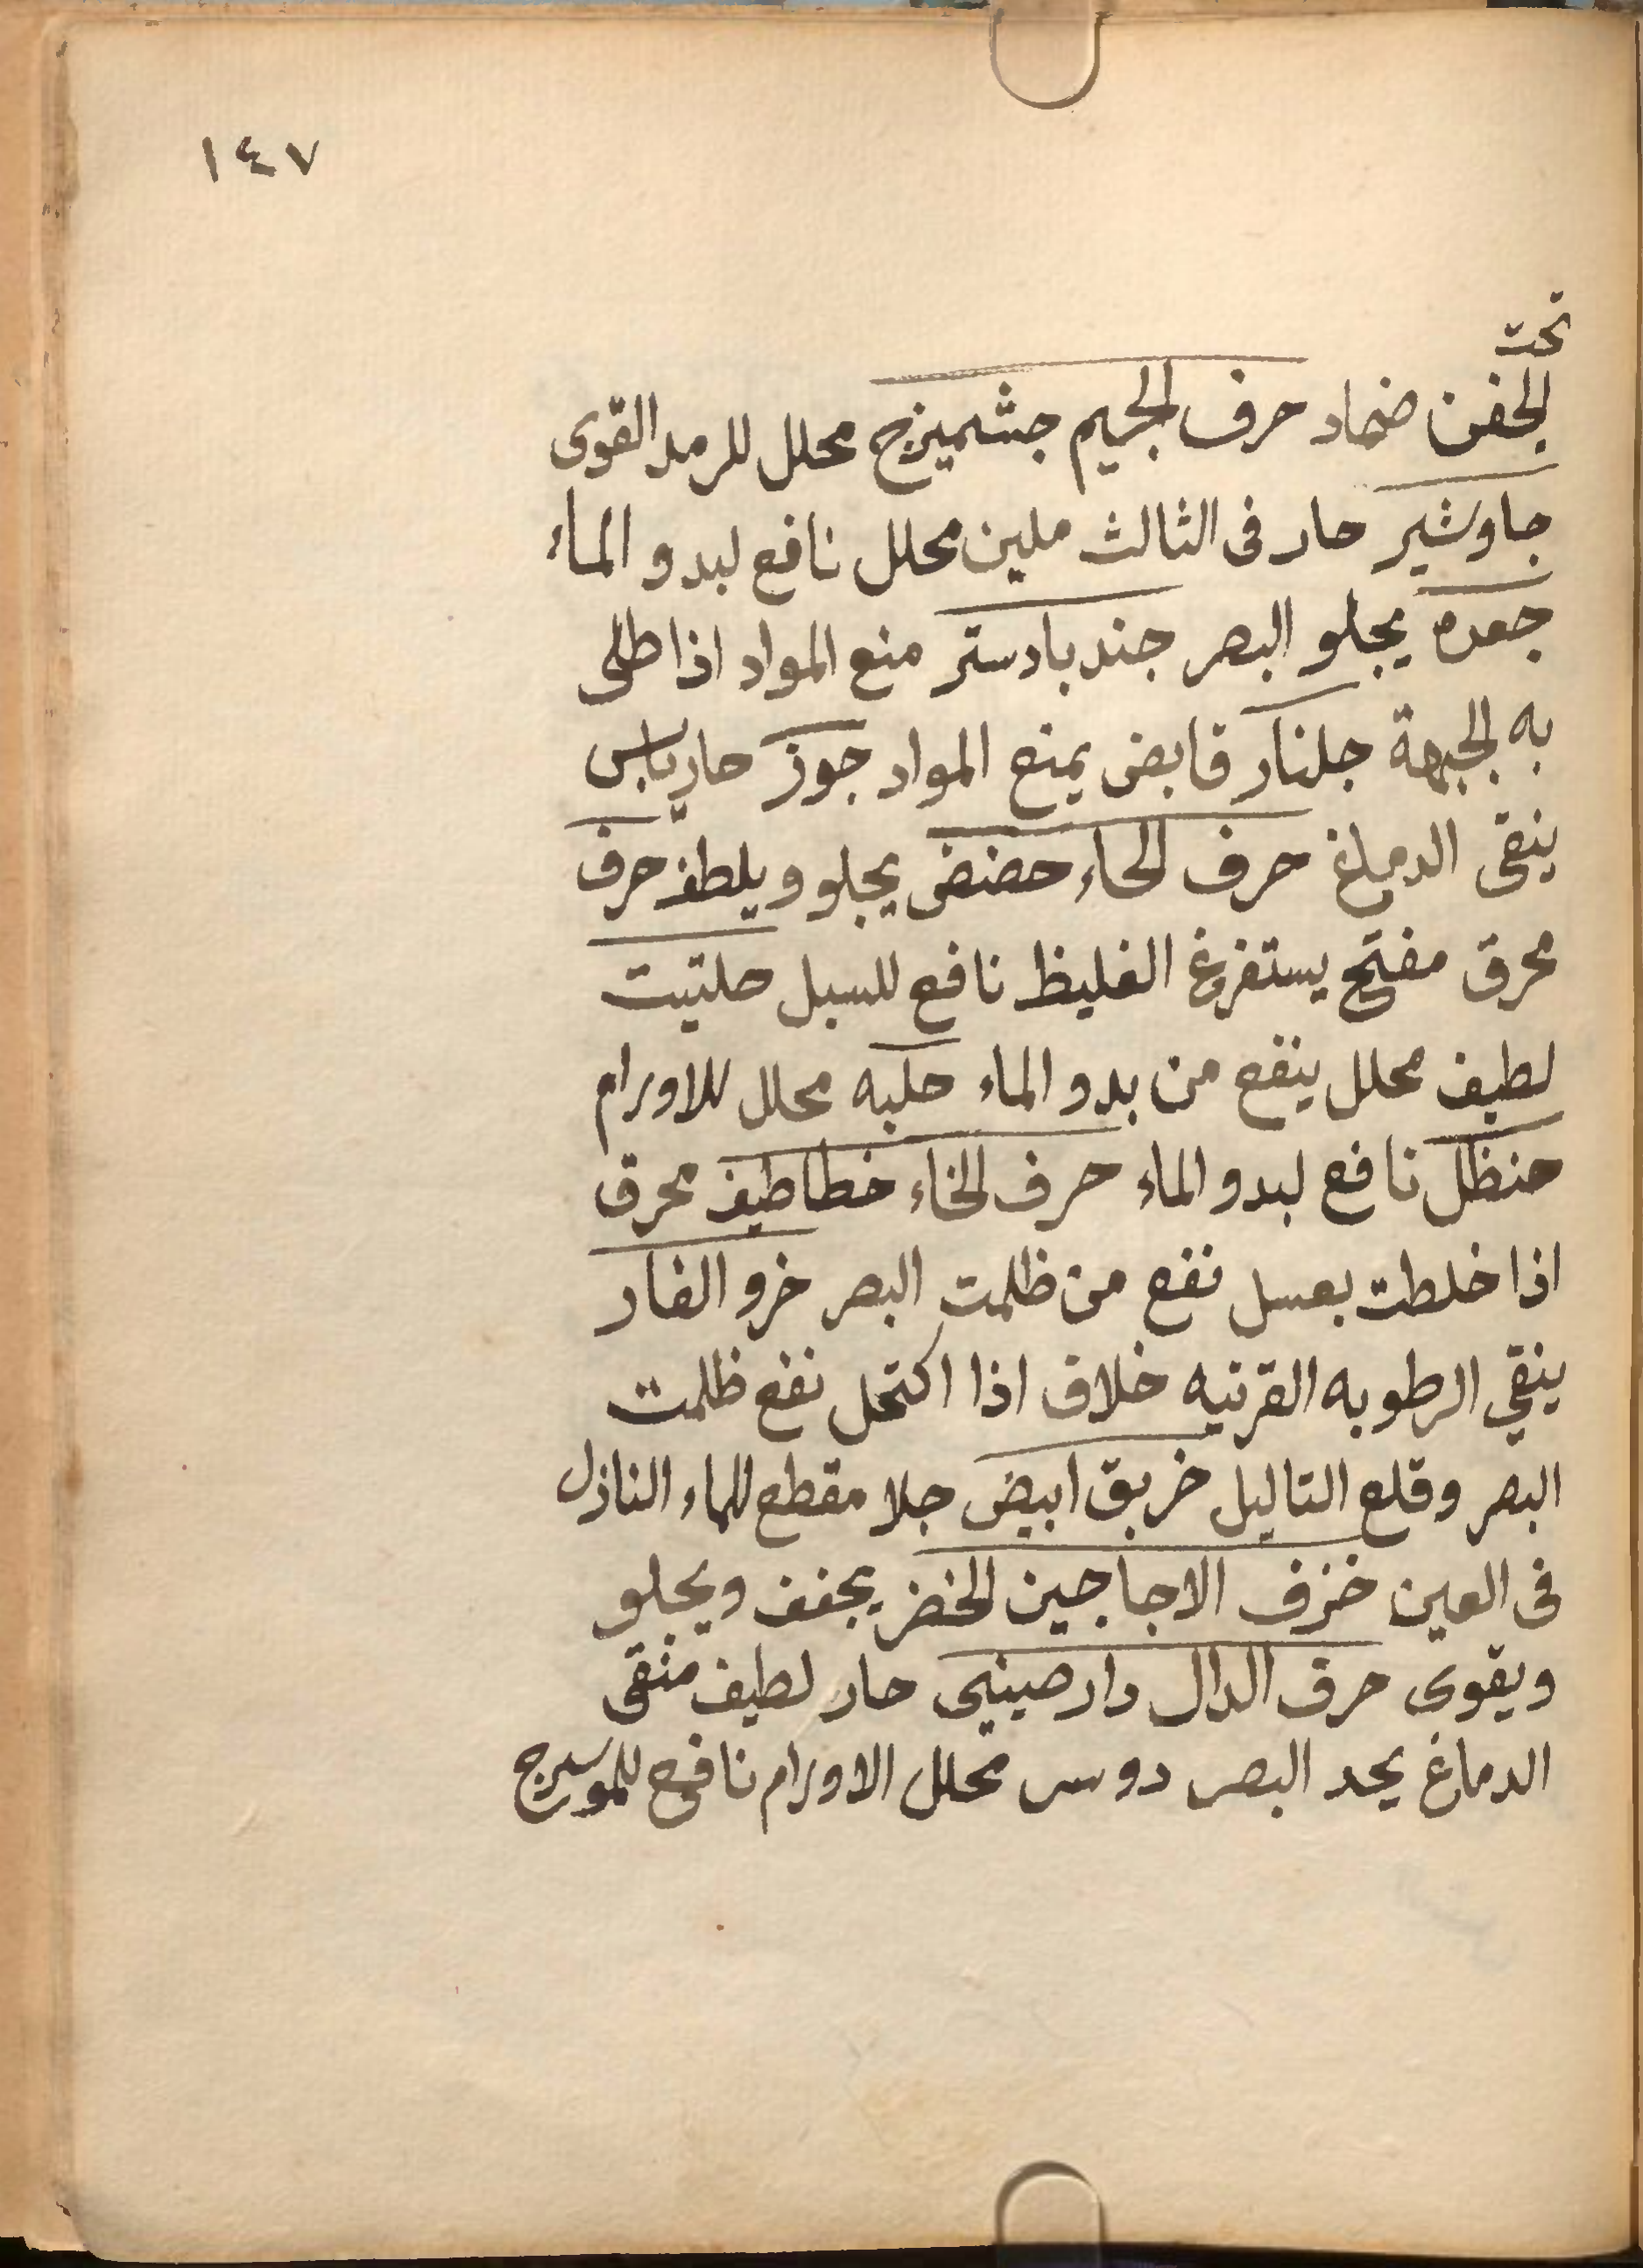 ١٤٧
تحت
الجفن ضماد حرف الجيم جشميزج محلل للرمد القوى
جاوشير حار فى الثالث ملين محلل نافع لبدو الماء
جعده يجلو البصر جندبادستر منع المواد اذا طلى
به الجبهة جلنار قابض يمنع المواد جوز حار يابس
ينقى الدماغ حرف الحاء حضض يجلو ويلطف حرف
محرق مفتح يستفرغ الغليظ نافع للسبل حلتيت
لطيف محلل ينفع من بدو الماء حلبه محلل للاورام
حنظل نافع لبدو الماء حرف الخاء خطاطيف محرق
اذا خلطت بعسل نفع من ظلمت البصر خرو الفار
ينقي الرطوبه القرنيه خلاف اذا اكتحل نفع ظلمت
البصر وقلع التاليل خربق ابيض جلا مقطع للماء النازل
فى العين خزف الاجاجين الخضر يجفف ويجلو
ويقوى حرف الدال دارصينى حار لطيف منقى
الدماغ يحد البصر دوسر محلل الاورام نافع للموسرج